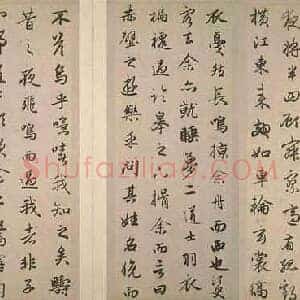 夜將半四顧寂寥適有孤鶴
橫江東來翅如車輪玄裳縞
衣戛然長鳴掠余舟而西也須臾
客去余亦就睡夢二道士羽衣
蹁躚過臨皋之下揖余而言曰
赤壁之遊樂乎問其姓名俛而
不答嗚乎噫嘻我知之矣疇
昔之夜飛鳴而過我者非子
Shufaziliao